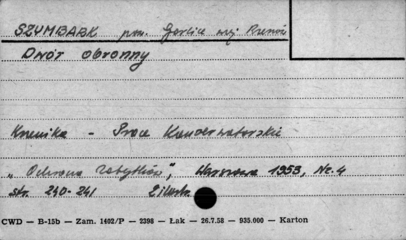 SZYMBARK pow. Gorlice woj. Rzesz.
Dwór obronny
Kronika - Prace Konserwatorskie
„Ochrona Zabytków", Warszawa 1953, Nr. 4
str. 240-241 Ilustr.
CWD — B-15b — Zam. 1402/P — 2398 — Łak — 26.7.58 — 935.000 — Karton